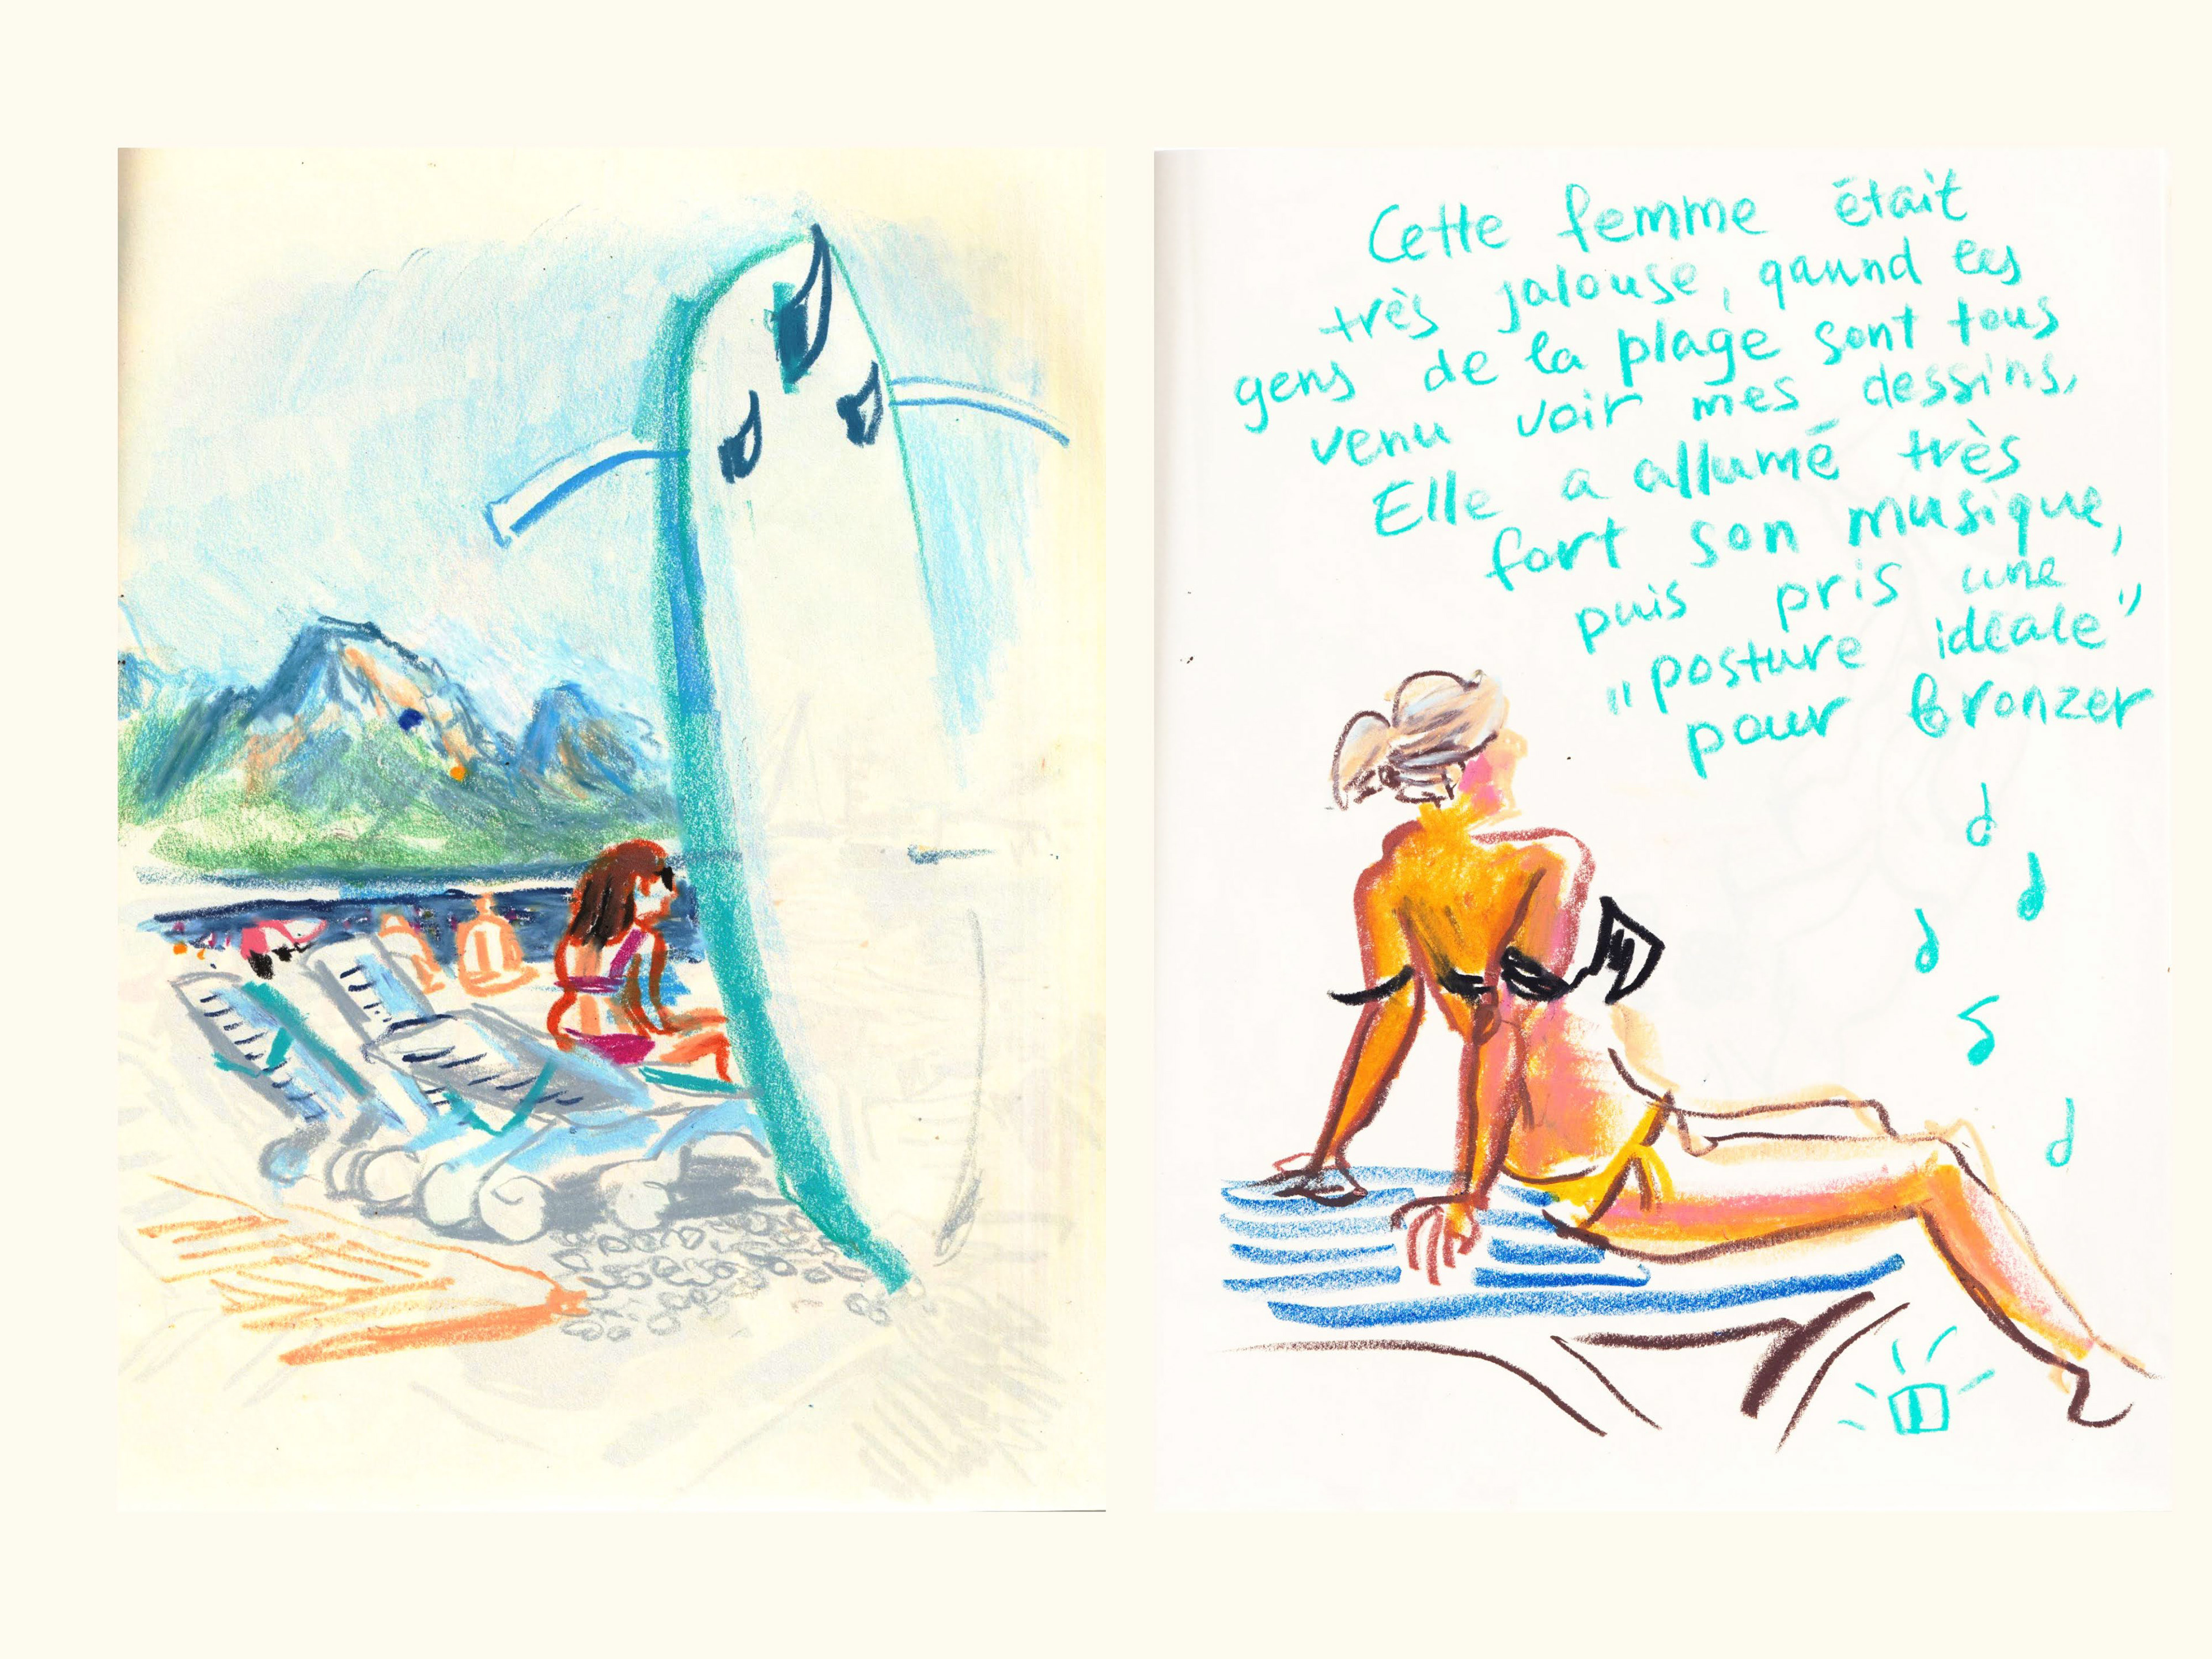 Cette femme était
très jalouse, qaund les
gens de la plage sont tous
venu voir mes dessins,
Elle a allumé très
fort son musique,
puis pris une
"posture idéale"
pour bronzer